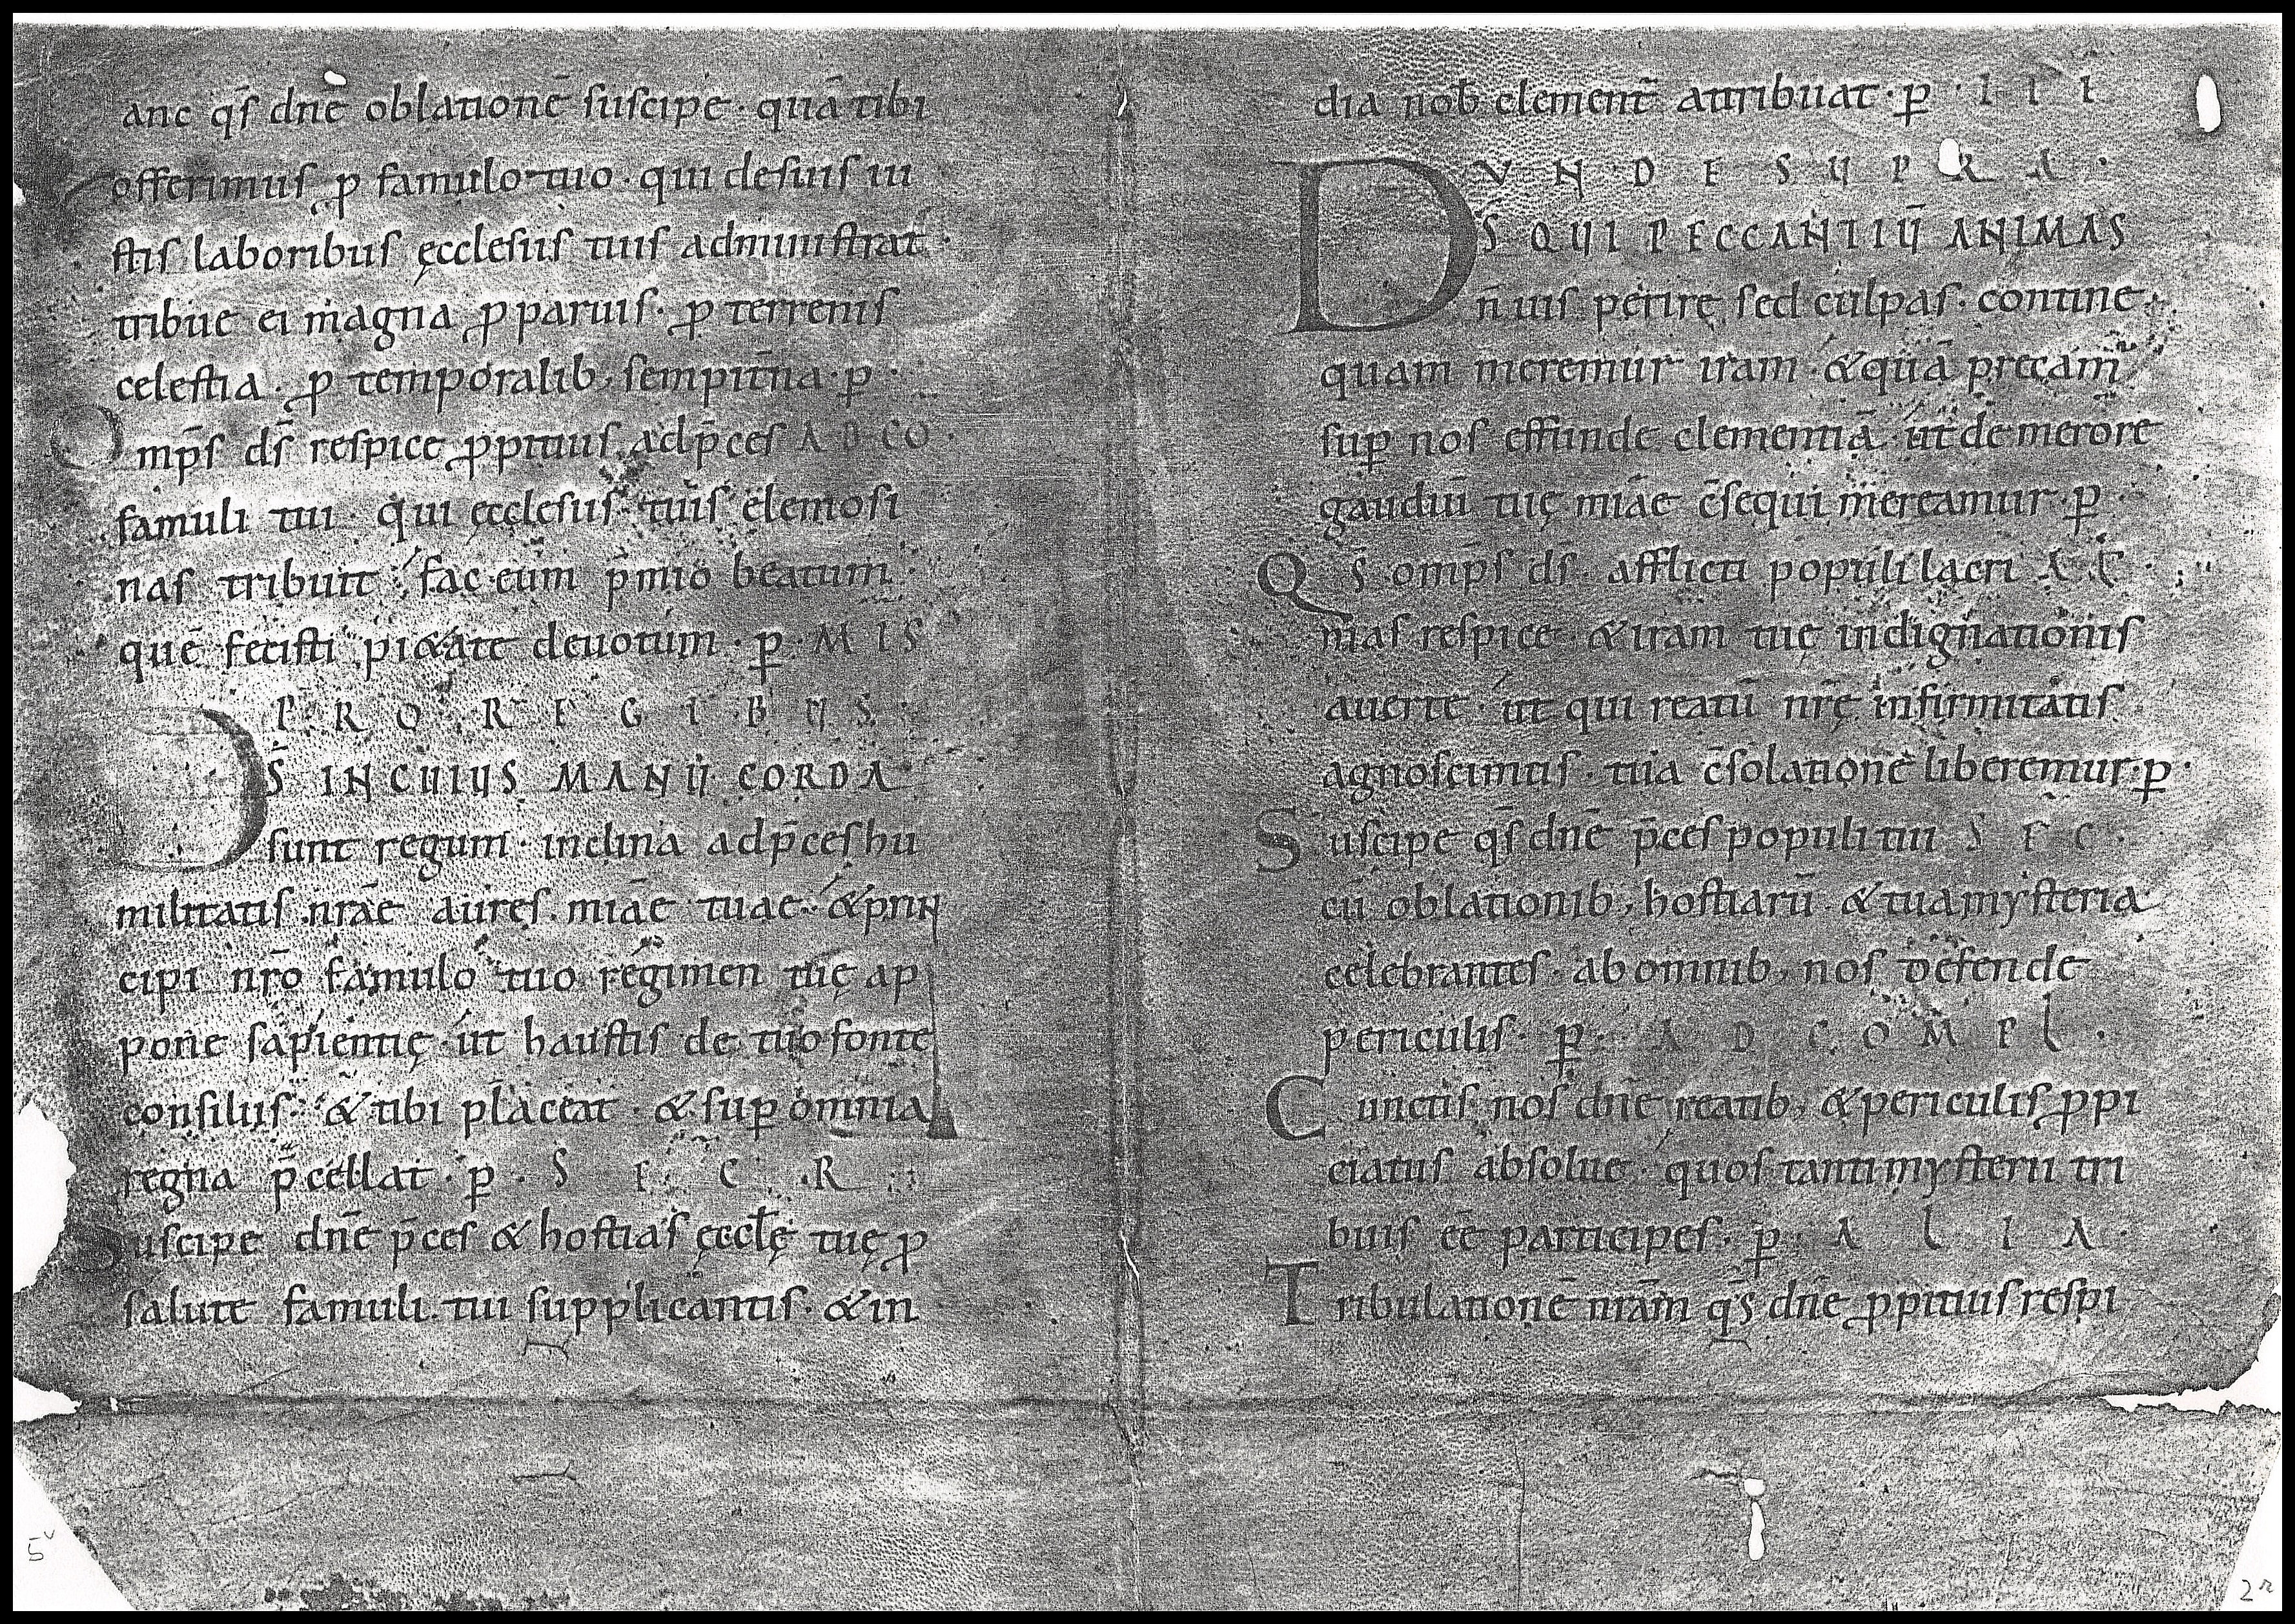 anc q̄s dn̄e oblationē suscipe · quā tibi
offerimus ꝓ famulo tuo · qui de suis iu
stis laboribus ęcclesiis tuis administrat ·
tribue ei magna ꝓ paruis · ꝓ terrenis
celestia · ꝓ temporalib; sempit̄na · p̲ ·
Omp̄s ds̄ respice ꝓpitius ad p̄ces AD CO ·
famuli tui · qui ęcclesiis tuis elemosi
nas tribuit · fac eum p̄mio beatum
quē fecisti pi&ate deuotum · p̲ · MIS
PRO REGIBUS
DS̄ IN CUIUS MANŪ CORDA
sunt regum · inclina ad p̄ces hu
militatis nrāe aures miāe tuae · & prin
cipi nrō famulo tuo regimen tuę ap
pone sapientię · ut haustis de tuo fonte
consiliis · & tibi placeat · & sup̲ omnia
regna p̄cellat · p̲ · SECR
Suscipe dn̄e p̄ces & hostias ęccłę tuę ꝓ
salute famuli tui supplicantis · & in
5v
dia nob̄ clement̄ attribuat · p̲ ·
UNDE SUPRA ·
DS̄ QUI PECCANTIŪ ANIMAS
n̄ uis perire sed culpas · contine
quam meremur iram · & quā precam̄
sup̲ nos effunde clementiā · ut de merore
gaudiū tuę miāe c̄sequi mereamur · p̲ ·
Qs̄ omp̄s ds̄ · afflicti populi lacri
mas respice · & iram tuę indignationis
auerte · ut qui reatū nrę̄ infirmitatis
agnoscimus · tua c̄solationē liberemur · p̲ ·
Suscipe q̄s dn̄e p̄ces populi tui SEC ·
cū oblationib; hostiarū · & tua mysteria
celebrantes · ab omnib; nos defende
periculis · p̲ · AD COMPL ·
Cunctis nos dn̄e reatib; & periculis ꝓpi
ciatus absolue · quos tanti mysterii tri
buis eē participes · p̲ · ALIA ·
Tribulationē nrām q̄s dn̄e ꝓpitius respi
2r